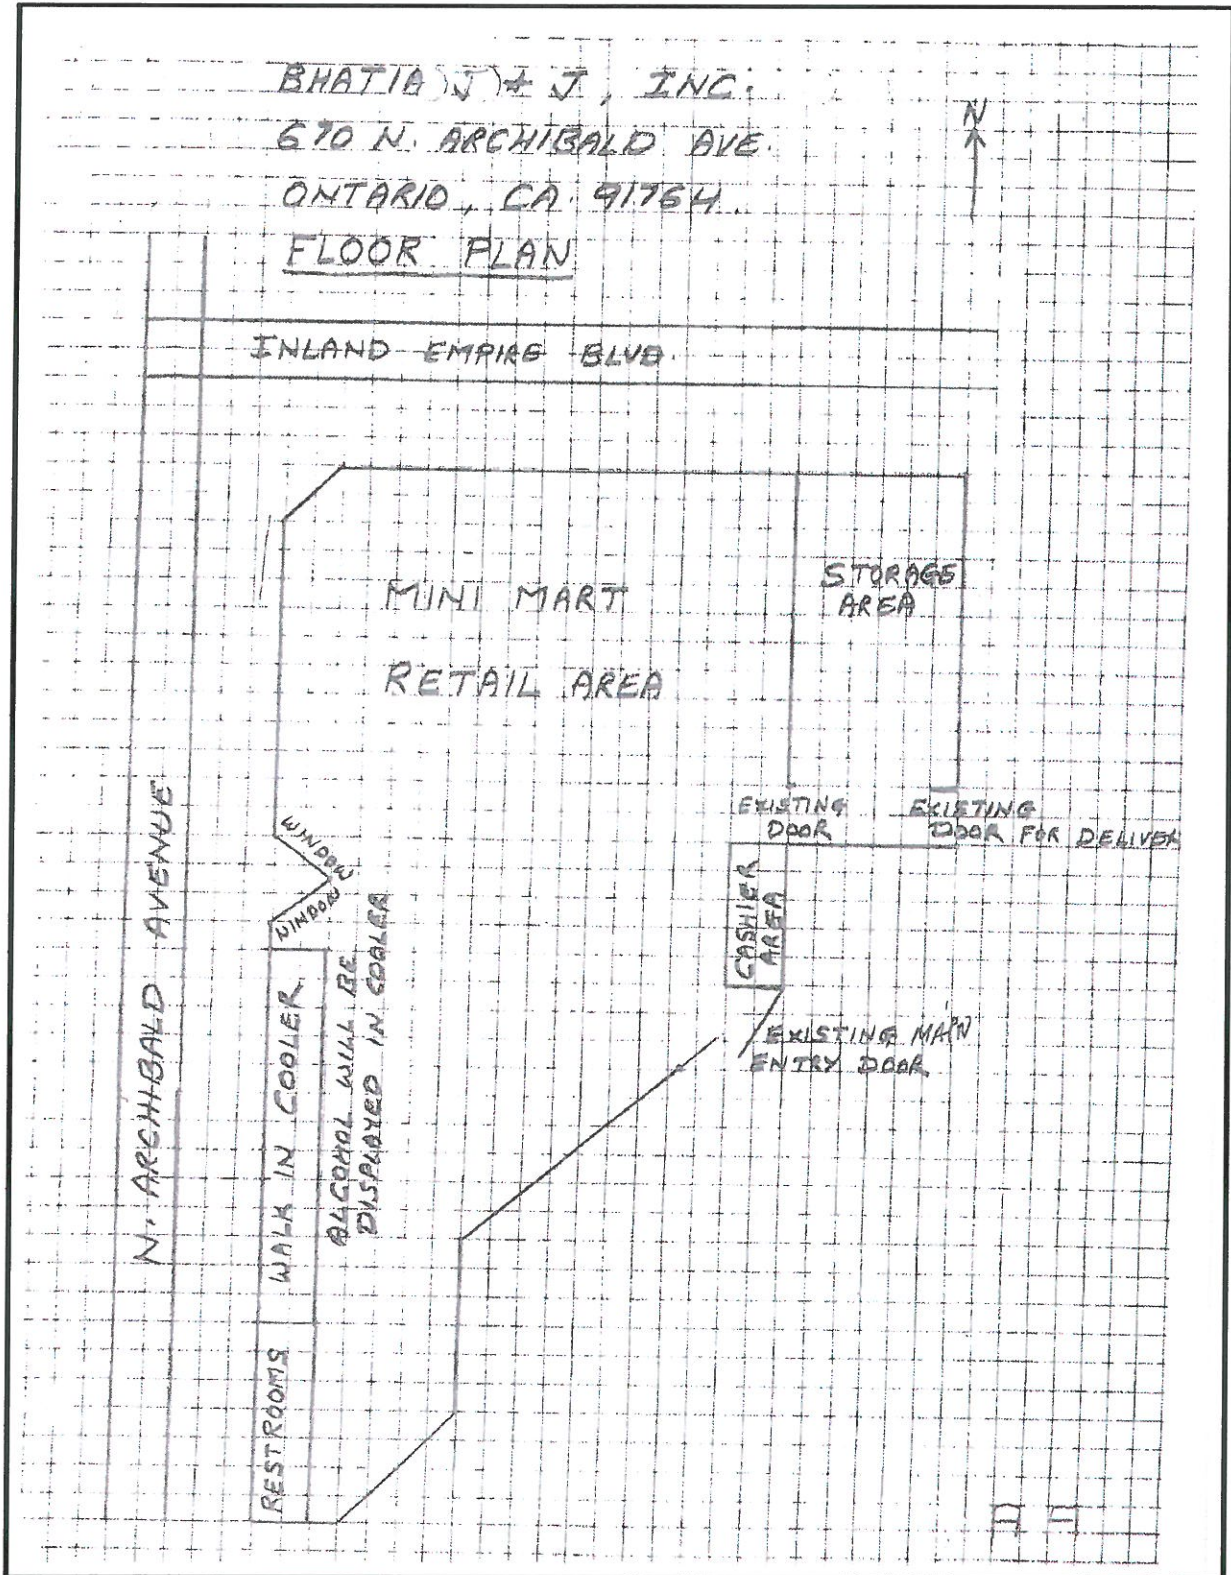 BHATIA J & J, INC.
670 N. ARCHIBALD AVE.
ONTARIO, CA. 91764.
FLOOR PLAN
N
INLAND EMPIRE BLVD.
MINI MART
RETAIL AREA
STORAGE
AREA
EXISTING
DOOR
EXISTING
DOOR FOR DELIVER
WINDOW
WINDOW
CASHIER
AREA
EXISTING MAIN
ENTRY DOOR
N. ARCHIBALD AVENUE
WALK IN COOLER
ALCOHOL WILL BE
DISPLAYED IN COOLER
RESTROOMS